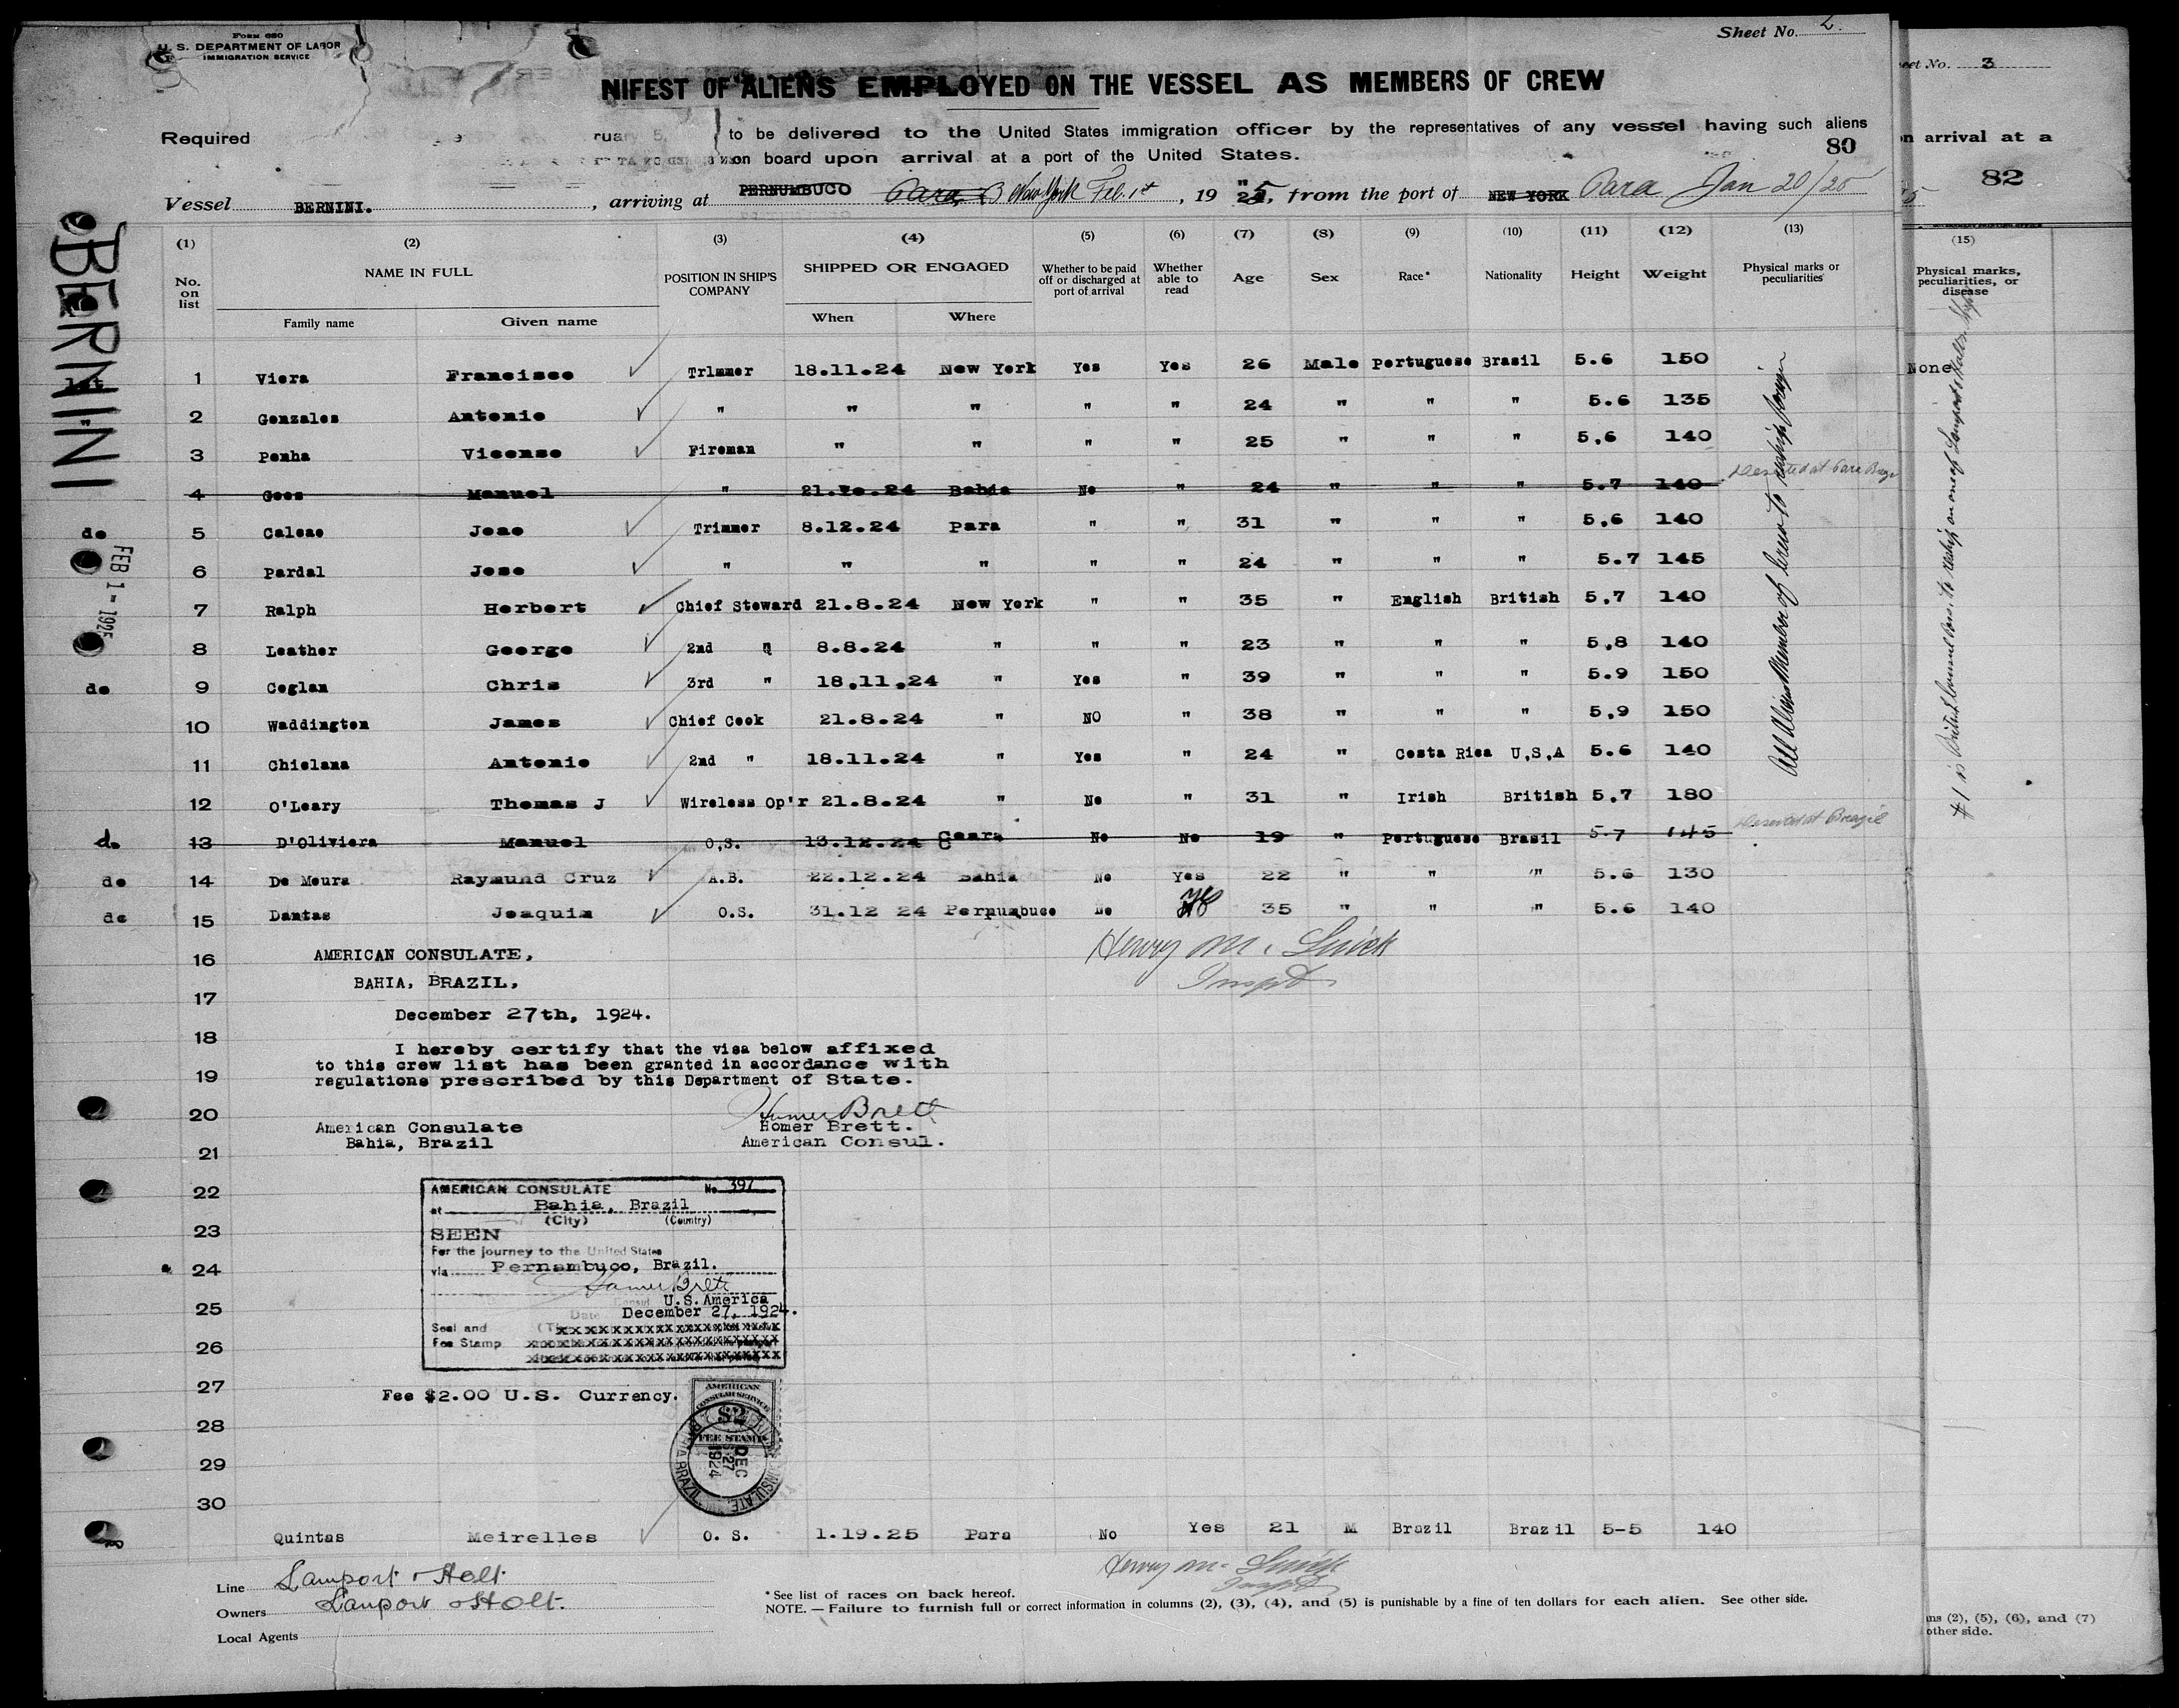 Form 680
U. S. DEPARTMENT OF LABOR
IMMIGRATION SERVICE
Sheet No. 2.
NIFEST OF ALIENS EMPLOYED ON THE VESSEL AS MEMBERS OF CREW
Required ruary 5, to be delivered to the United States immigration officer by the representatives of any vessel having such aliens
on board upon arrival at a port of the United States.
80
Vessel BERNINI. , arriving at PERNUMBUCO Para, B New York Feb. 1st , 19 25, from the port of NEW YORK Para Jan 20/25
BERNINI
FEB 1 - 1925
(1) (2) (3) (4) (5) (6) (7) (8) (9) (10) (11) (12) (13)
No. on list NAME IN FULL POSITION IN SHIP'S COMPANY SHIPPED OR ENGAGED Whether to be paid off or discharged at port of arrival Whether able to read Age Sex Race* Nationality Height Weight Physical marks or peculiarities
Family name Given name When Where
1st 1 Viera Francisco Trimmer 18.11.24 New York Yes Yes 26 Male Portuguese Brasil 5.6 150
" 2 Gonzales Antonio " " " " " 24 " " " 5.6 135
3 Penha Vicense Fireman " " " " 25 " " " 5.6 140
4 Goes Manuel " 21.10.24 Bahia No " 24 " " " 5.7 140 Deserted at Para
do 5 Caleao Joao Trimmer 8.12.24 Para " " 31 " " " 5.6 140
6 Pardal Jose " " " " " 24 " " " 5.7 145
7 Ralph Herbert Chief Steward 21.8.24 New York " " 35 " English British 5.7 140
8 Leather George 2nd " 8.8.24 " " " 23 " " " 5.8 140
do 9 Coglan Chris 3rd " 18.11.24 " Yes " 39 " " " 5.9 150
10 Waddington James Chief Cook 21.8.24 " NO " 38 " " " 5.9 150
11 Chielana Antonio 2nd " 18.11.24 " Yes " 24 " Costa Rica U.S.A 5.6 140
12 O'Leary Thomas J Wireless Op'r 21.8.24 " No " 31 " Irish British 5.7 180
do 13 D'Oliviera Manuel O.S. 13.12.24 Ceara No No 19 " Portuguese Brasil 5.7 145 Deserted at
do 14 De Moura Raymund Cruz A.B. 22.12.24 Bahia No Yes 22 " " " 5.6 130
do 15 Dantas Joaquim O.S. 31.12 24 Pernumbuco No 35 " " " 5.6 140
All Alien Member of Crew to reship foreign
16
AMERICAN CONSULATE,
BAHIA, BRAZIL,
Henry M.
Inspt
17
December 27th, 1924.
18
I hereby certify that the visa below affixed
to this crew list has been granted in accordance with
19
regulations prescribed by this Department of State.
20
Homer Brett
American Consulate Homer Brett.
Bahia, Brazil American Consul.
21
22
AMERICAN CONSULATE No 397
at Bahia, Brazil
(City) (Country)
23
SEEN
For the journey to the United States
24
via Pernambuco, Brazil.
Homer Brett
25
Consul U.S. America
Date December 27, 1924.
Seal and
26
Fee Stamp
27
Fee $2.00 U.S. Currency.
AMERICAN
CONSULAR SERVICE
$2
FEE STAMP
DEC
27
1924
BAHIA BRAZIL
28
29
30
Quintas Meirelles O. S. 1.19.25 Para No Yes 21 M Brazil Brazil 5-5 140
Henry M.
Inspt
Line Lamport & Holt
Owners Lamport & Holt.
Local Agents
* See list of races on back hereof.
NOTE. — Failure to furnish full or correct information in columns (2), (3), (4), and (5) is punishable by a fine of ten dollars for each alien. See other side.
eet No. 3
n arrival at a
82
(15)
Physical marks, peculiarities, or disease
None
ns (2), (5), (6), and (7)
other side.